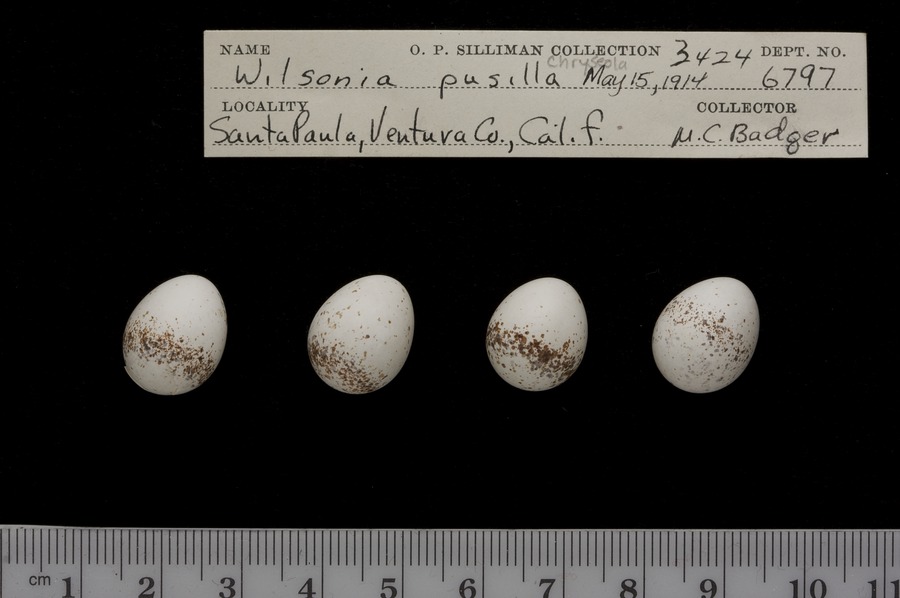 NAME O. P. SILLIMAN COLLECTION 3424 DEPT. NO.
Chryseola
Wilsonia pusilla May 15, 1914 6797
LOCALITY COLLECTOR
Santa Paula, Ventura Co., Cal.f. M.C. Badger
cm 1 2 3 4 5 6 7 8 9 10 11